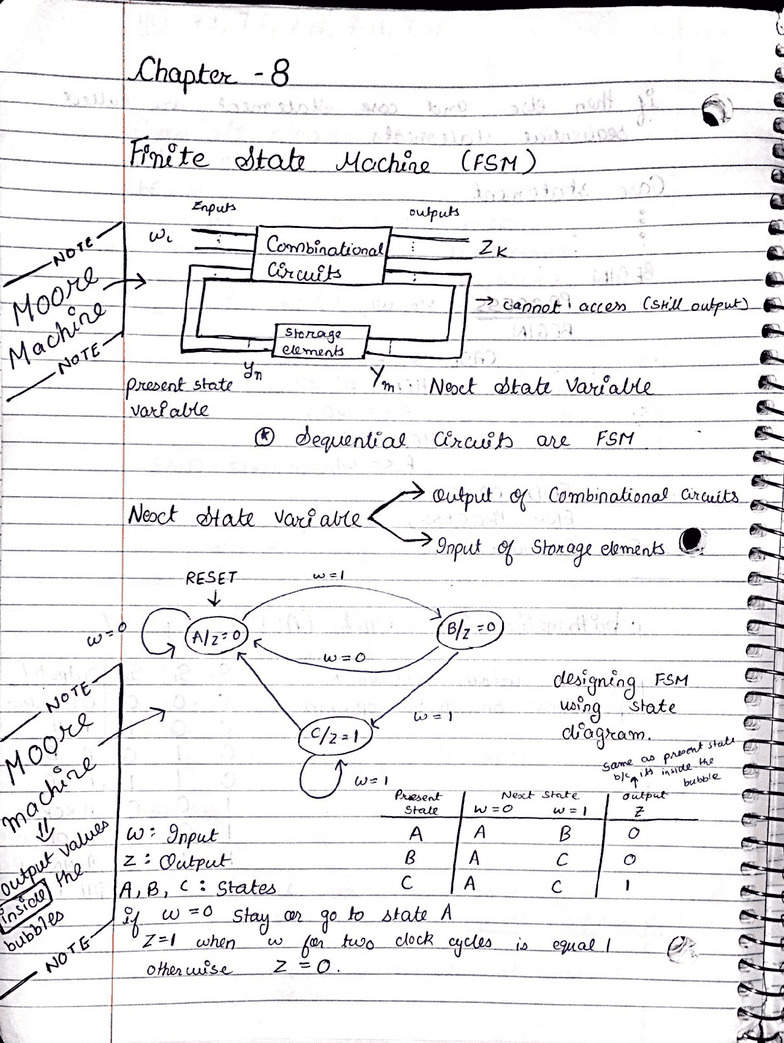 Chapter - 8
Finite State Machine (FSM)
Inputs
outputs
NOTE
Moore
Machine
NOTE
wᵢ
Combinational
Circuits
Zk
→ cannot access (still output)
Storage
elements
yn
Ym
present state
variable
: Next State Variable
⊛ Sequential Circuits are FSM
Next State Variable
→ Output of Combinational Circuits
→ Input of Storage elements
RESET
w=1
w=0
A/z=0
B/z=0
w=0
w=1
C/z=1
w=1
designing FSM
using state
diagram.
NOTE
MOORE
machine
⇓
output values
inside the
bubbles
NOTE
same as present state
b/c its inside the
bubble
Present State | Next State | output
w=0 w=1 | Z
A | A B | 0
B | A C | 0
C | A C | 1
w: Input
z: Output
A, B, C: States
if w=0 stay or go to state A
Z=1 when w for two clock cycles is equal 1
otherwise Z=0.